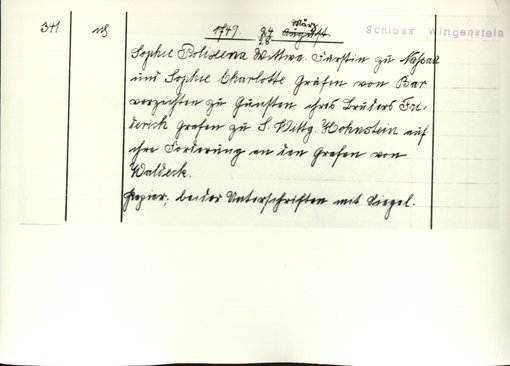 341
1749. 24 März
28 August.
Schloss Wittgenstein
Sophie Polixena Wittwe. Fürstin zu Nassau
und Sophie Charlotte Gräfin von Bar
verzichten zu Gunsten ihres Bruders Frie-
derich Grafen zu S. Wittg. Hohnstein auf
ihre Forderung an den Grafen von
Waldeck.
Papier, beider Unterschriften mit Siegel.